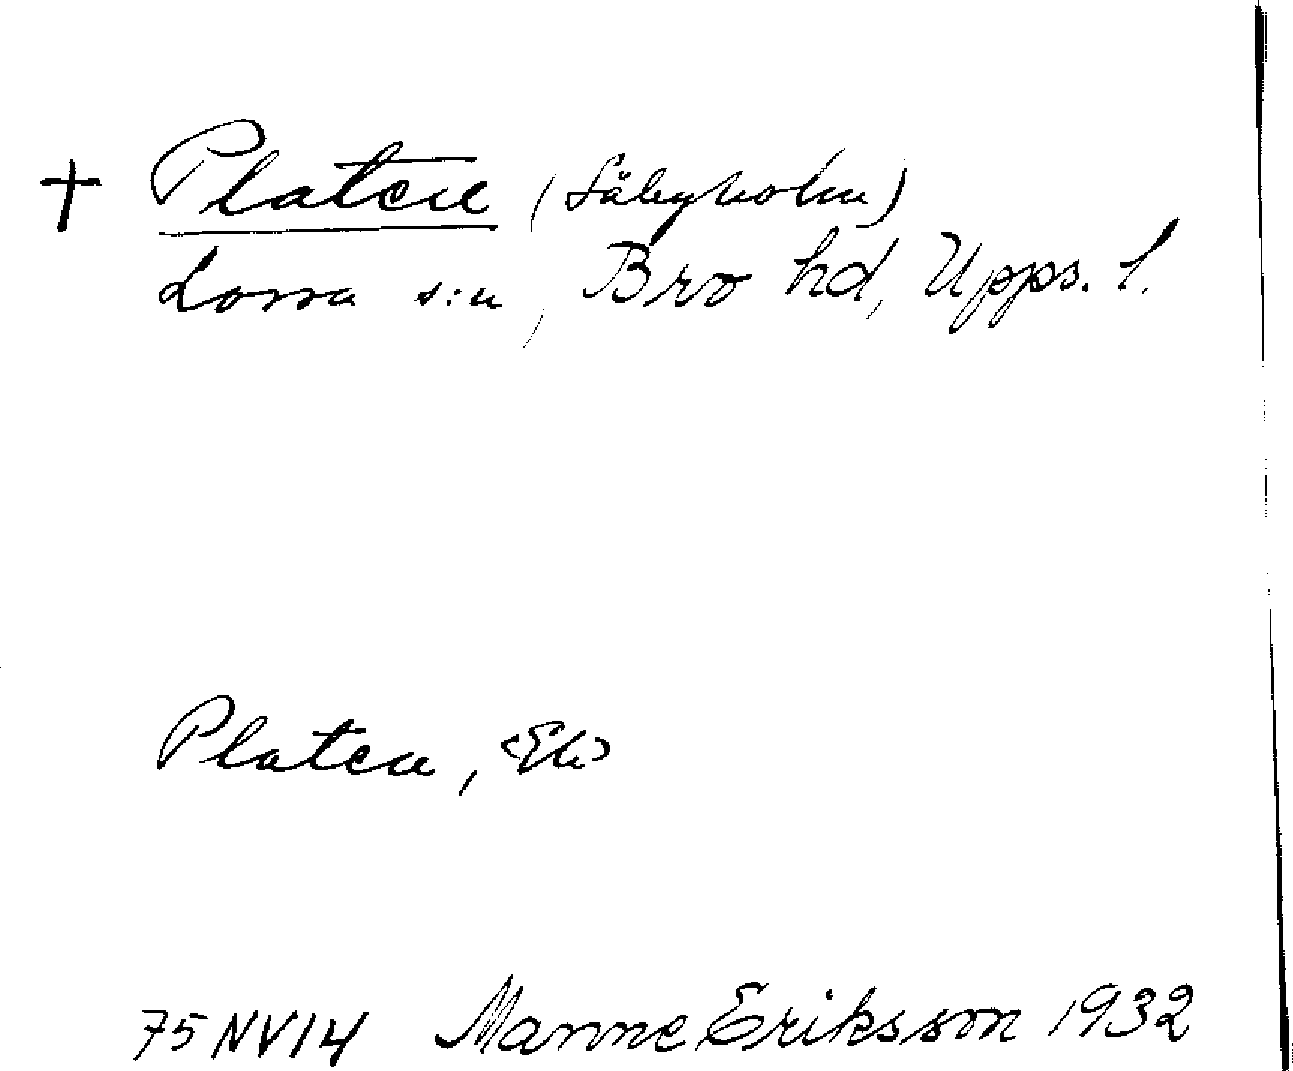 + Platen (Säbyholm)
Lossa s:n, Bro hd, Upps. l.
Platen, <Ek>
75 NV14 Manne Eriksson 1932